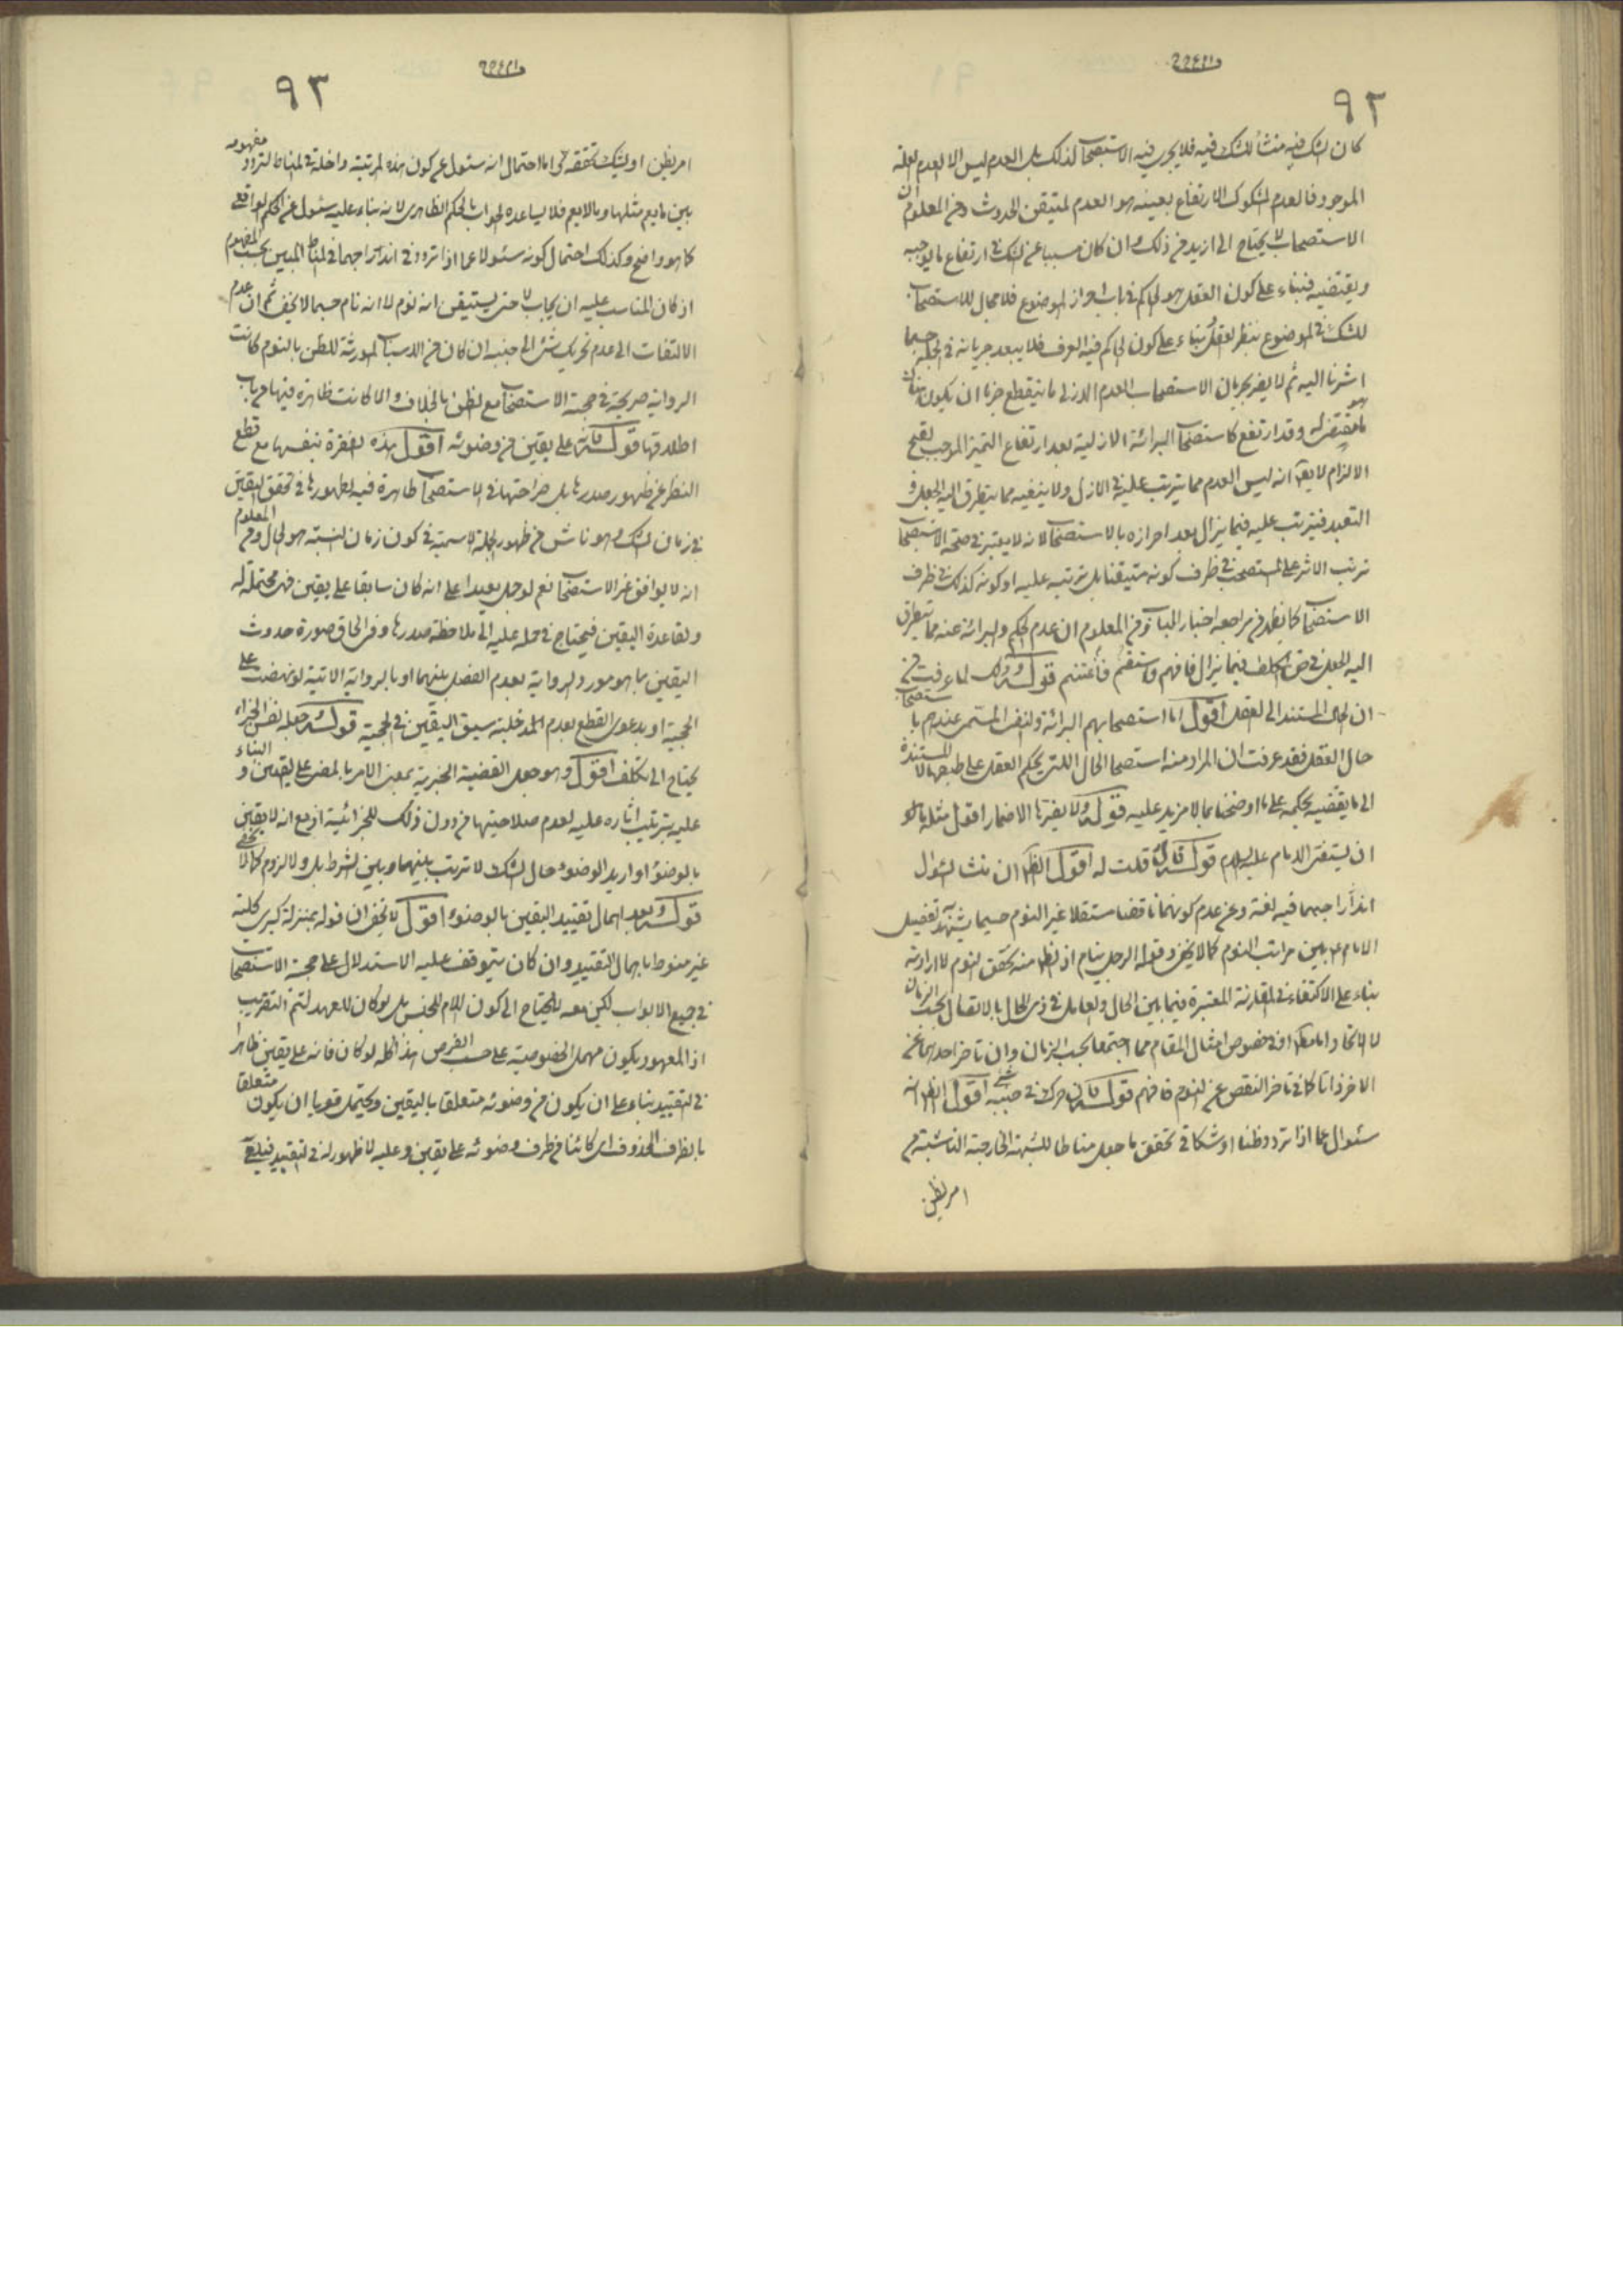 ٩٢
كان الشك فيه منشأ للشك فيه فلا يجرى فيه الاستصحاب لذلك بل العدم ليس الا لعدم العلة
الموجود فالعدم المشكوك الارتفاع بعينه هو العدم المتيقن الحدوث ومن المعلوم ان
الاستصحاب لا يحتاج الى ازيد من ذلك وان كان مسببا عن الشك فى ارتفاع ما يوجبه
ويقتضيه فبناء على كون العقل هو الحاكم فى باب احراز الموضوع فلا مجال للاستصحاب
للشك فى الموضوع بنظر العقل وبناء على كون الحاكم فيه العرف فلا يبعد جريانه فى الجملة حسبما
اشرنا اليه ثم لا يضر بجريان الاستصحاب العدم الازلى ما ينقطع جزما ان يكون هناك
ما هو مقتض له وقد ارتفع كاستصحاب البرائة الازلية بعد ارتفاع التميز الموجب لقبح
الالزام لا يقال انه ليس العدم مما يترتب عليه فى الازل ولا ينفيه مما يتطرق اليه الجعل و
التعبد فيترتب عليه فيما يزال بعد احرازه بالاستصحاب لانه لا يعتبر فى صحة الاستصحاب
ترتب الاثر على المستصحب فى ظرف كونه متيقنا بل ترتبه عليه او كونه كذلك فى ظرف
الاستصحاب كما يظهر من مراجعة اخبار الباب ومن المعلوم ان عدم الحكم والبرائة عنه مما يتطرق
اليه الجعل فى حق المكلف فيما يزال فافهم واستقم فاغتنم قوله وذلك لما عرفت من
ان الحال المستند الى العقل اقول اما استصحابهم البرائة والنفى المستمر عندهم باستصحاب
حال العقل فقد عرفت ان المراد منه استصحاب الحال التى يحكم العقل على طبقها لا المستندة
الى ما يقتضيه بحكمه على ما اوضحنا بما لا مزيد عليه قوله ولا يضرها الاضمار اقول مثله
ان يستفتى الامام عليه السلام قوله قال قلت له اقول الظاهر ان منشأ السؤال
اندراجهما فيه لغة وعن عدم كونهما ناقضا مستقلا غير النوم حسبما يشهد به تفصيل
الامام ع بين مراتب النوم كما لا يخفى وقوله الرجل ينام اذ الظاهر منه تحقق النوم لا ارادته
بناء على الاكتفاء فى المقارنة المعتبرة فيما بين الحال والعامل فى ذى الحال بالاتصال بحسب الزمان
لا الاتحاد اما مطلقا او فى خصوص امثال المقام مما اجتمعا بحسب الزمان وان تاخر احدهما عن
الاخر ذاتا كما فى تاخر النقض عن النوم فافهم قوله فان حرك فى جنبه شئ اقول الظاهر انه
سئوال عما اذا تردد وظنا او شكا فى تحقق ما جعل مناطا للشبهة الخارجية الناشئة من
امر يظن
٩٣
امر يظن او يشك تحققه واما احتمال انه سئول عن كون هذه المرتبة داخلة فى المناط لتردد مفهومه
بين ما يعم مثلها وما لا يعم فلا يساعده الجواب بالحكم الظاهرى لانه بناء عليه سئول عن الحكم الواقعى
كما هو واضح وكذلك احتمال كونه سئولا عما اذا تردد فى اندراجهما فى المناط المبين بحسب المفهوم
اذ كان المناسب عليه ان يجاب لا حتى يستيقن انه نوم لا انه نام حسبما لا يخفى ثم ان عدم
الالتفات الى عدم تحريك شئ الى جنبه ان كان من الاسباب المورثة للظن بالنوم كانت
الرواية صريحة فى حجية الاستصحاب مع الظن بالخلاف والا كانت ظاهرة فيها من باب
اطلاقها قوله فانه على يقين من وضوئه اقول هذه الفقرة بنفسها مع قطع
النظر عن ظهور صدرها بل صراحتها فى الاستصحاب ظاهرة فيه لظهورها فى تحقق اليقين
فى زمان الشك وهو ناش من ظهور الجملة الاسمية فى كون زمان النسبة هو الحال ومن المعلوم
انه لا يوافق غير الاستصحاب نعم لو حمل بعيدا على انه كان سابقا على يقين فهى محتملة له
ولقاعدة اليقين فيحتاج فى حمله عليه الى ملاحظة صدرها وفى الحاق صورة حدوث
اليقين بما هو مورد الرواية بعدم الفصل بينهما او بالرواية الاتية لو نهضت على
الحجية او بدعوى القطع بعدم المدخلية سبق اليقين فى الحجية قوله وجعله نفس الجزاء
يحتاج الى تكلف اقول وهو جعل القضية الخبرية بمعنى الامر بالمضى على اليقين والبناء
عليه بترتيب اثاره عليه لعدم صلاحيتها من دون ذلك للجزائية اذ مع انه لا يقين
بالوضوء او اريد الوضوء حال الشك لا ترتب بينهما وبين الشرط بل ولا لزوم كما لا يخفى
قوله وبعد اهمال تقييد اليقين بالوضوء اقول لا يخفى ان قوله بمنزلة كبرى كلية
غير منوط باهمال التقييد وان كان يتوقف عليه الاستدلال على حجية الاستصحاب
فى جميع الابواب لكن معه لا يحتاج الى كون اللام للجنس بل لو كان للعهد لتم التقريب
اذ المعهود يكون مهمل الخصوصية على حسب الفرض هذا كله لو كان فانه على يقين ظاهرا
فى التقييد بناء على ان يكون من وضوئه متعلقا باليقين ويحتمل قويا ان يكون متعلقا
بالظرف المحذوف اى كائنا من طرف وضوئه على يقين وعليه لا ظهور له فى التقييد